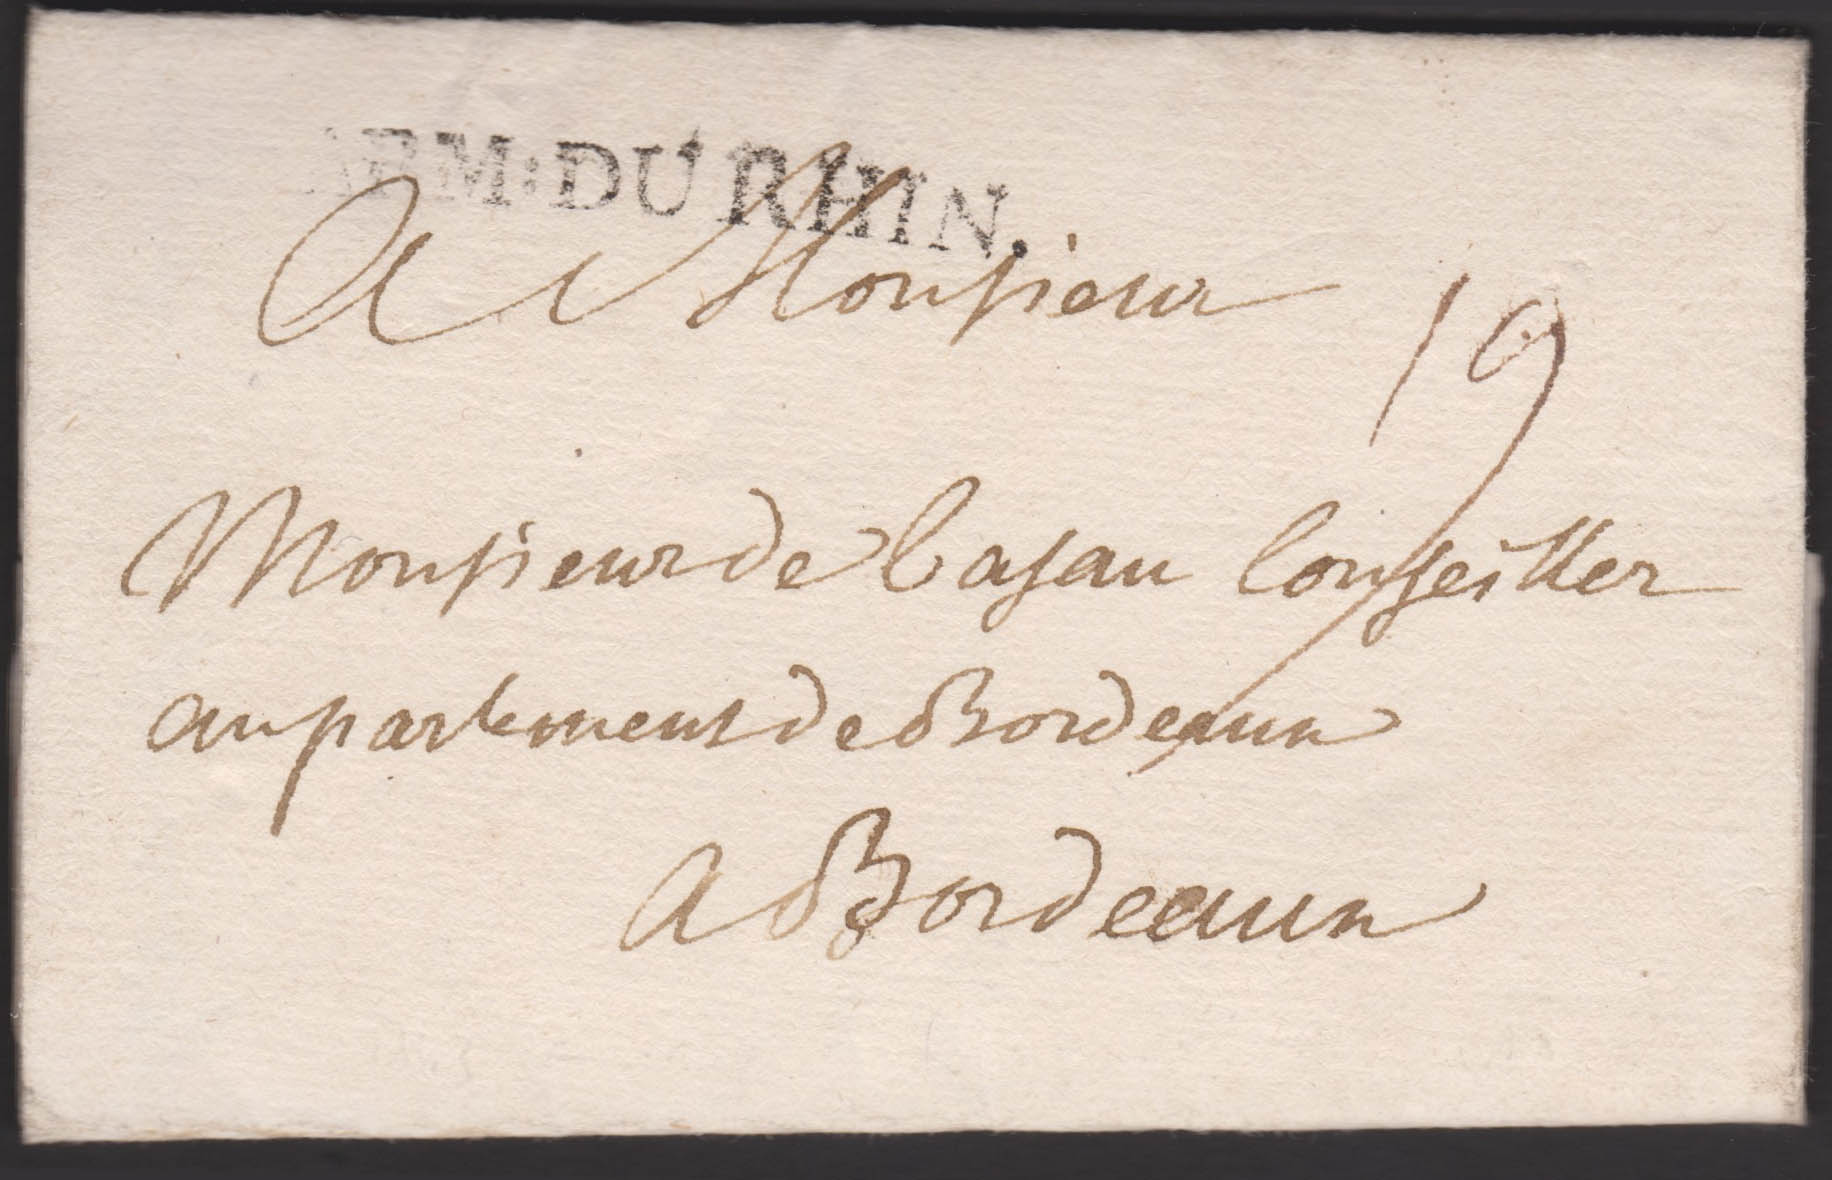 ARM: DU RHIN.
A Monsieur
19
Monsieur de Casau Conseiller
au parlement de Bordeaux
A Bordeaux